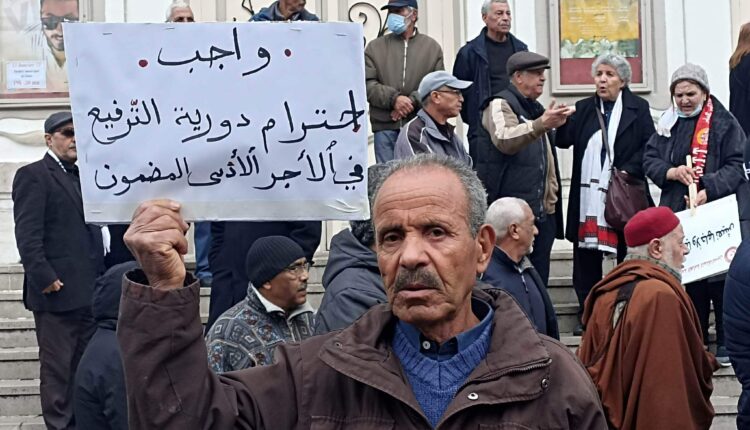 واجب
احترام دورية التّرفيع
في الأجر الأدنى المضمون